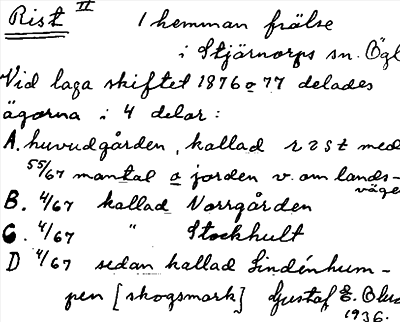 Rist II 1 hemman frälse
i Stjärnorps sn. Ögl
Vid laga skiftet 1876 o 77 delades
ägorna i 4 delar:
A. huvudgården, kallad r z s t med
55/67 mantal o jorden v. om lands-
väge
B. 4/67 kallad Norrgården
C. 4/67 " Stockhult
D 4/67 sedan kallad Lindénhum-
pen [skogsmark] Gustaf E.
1936.